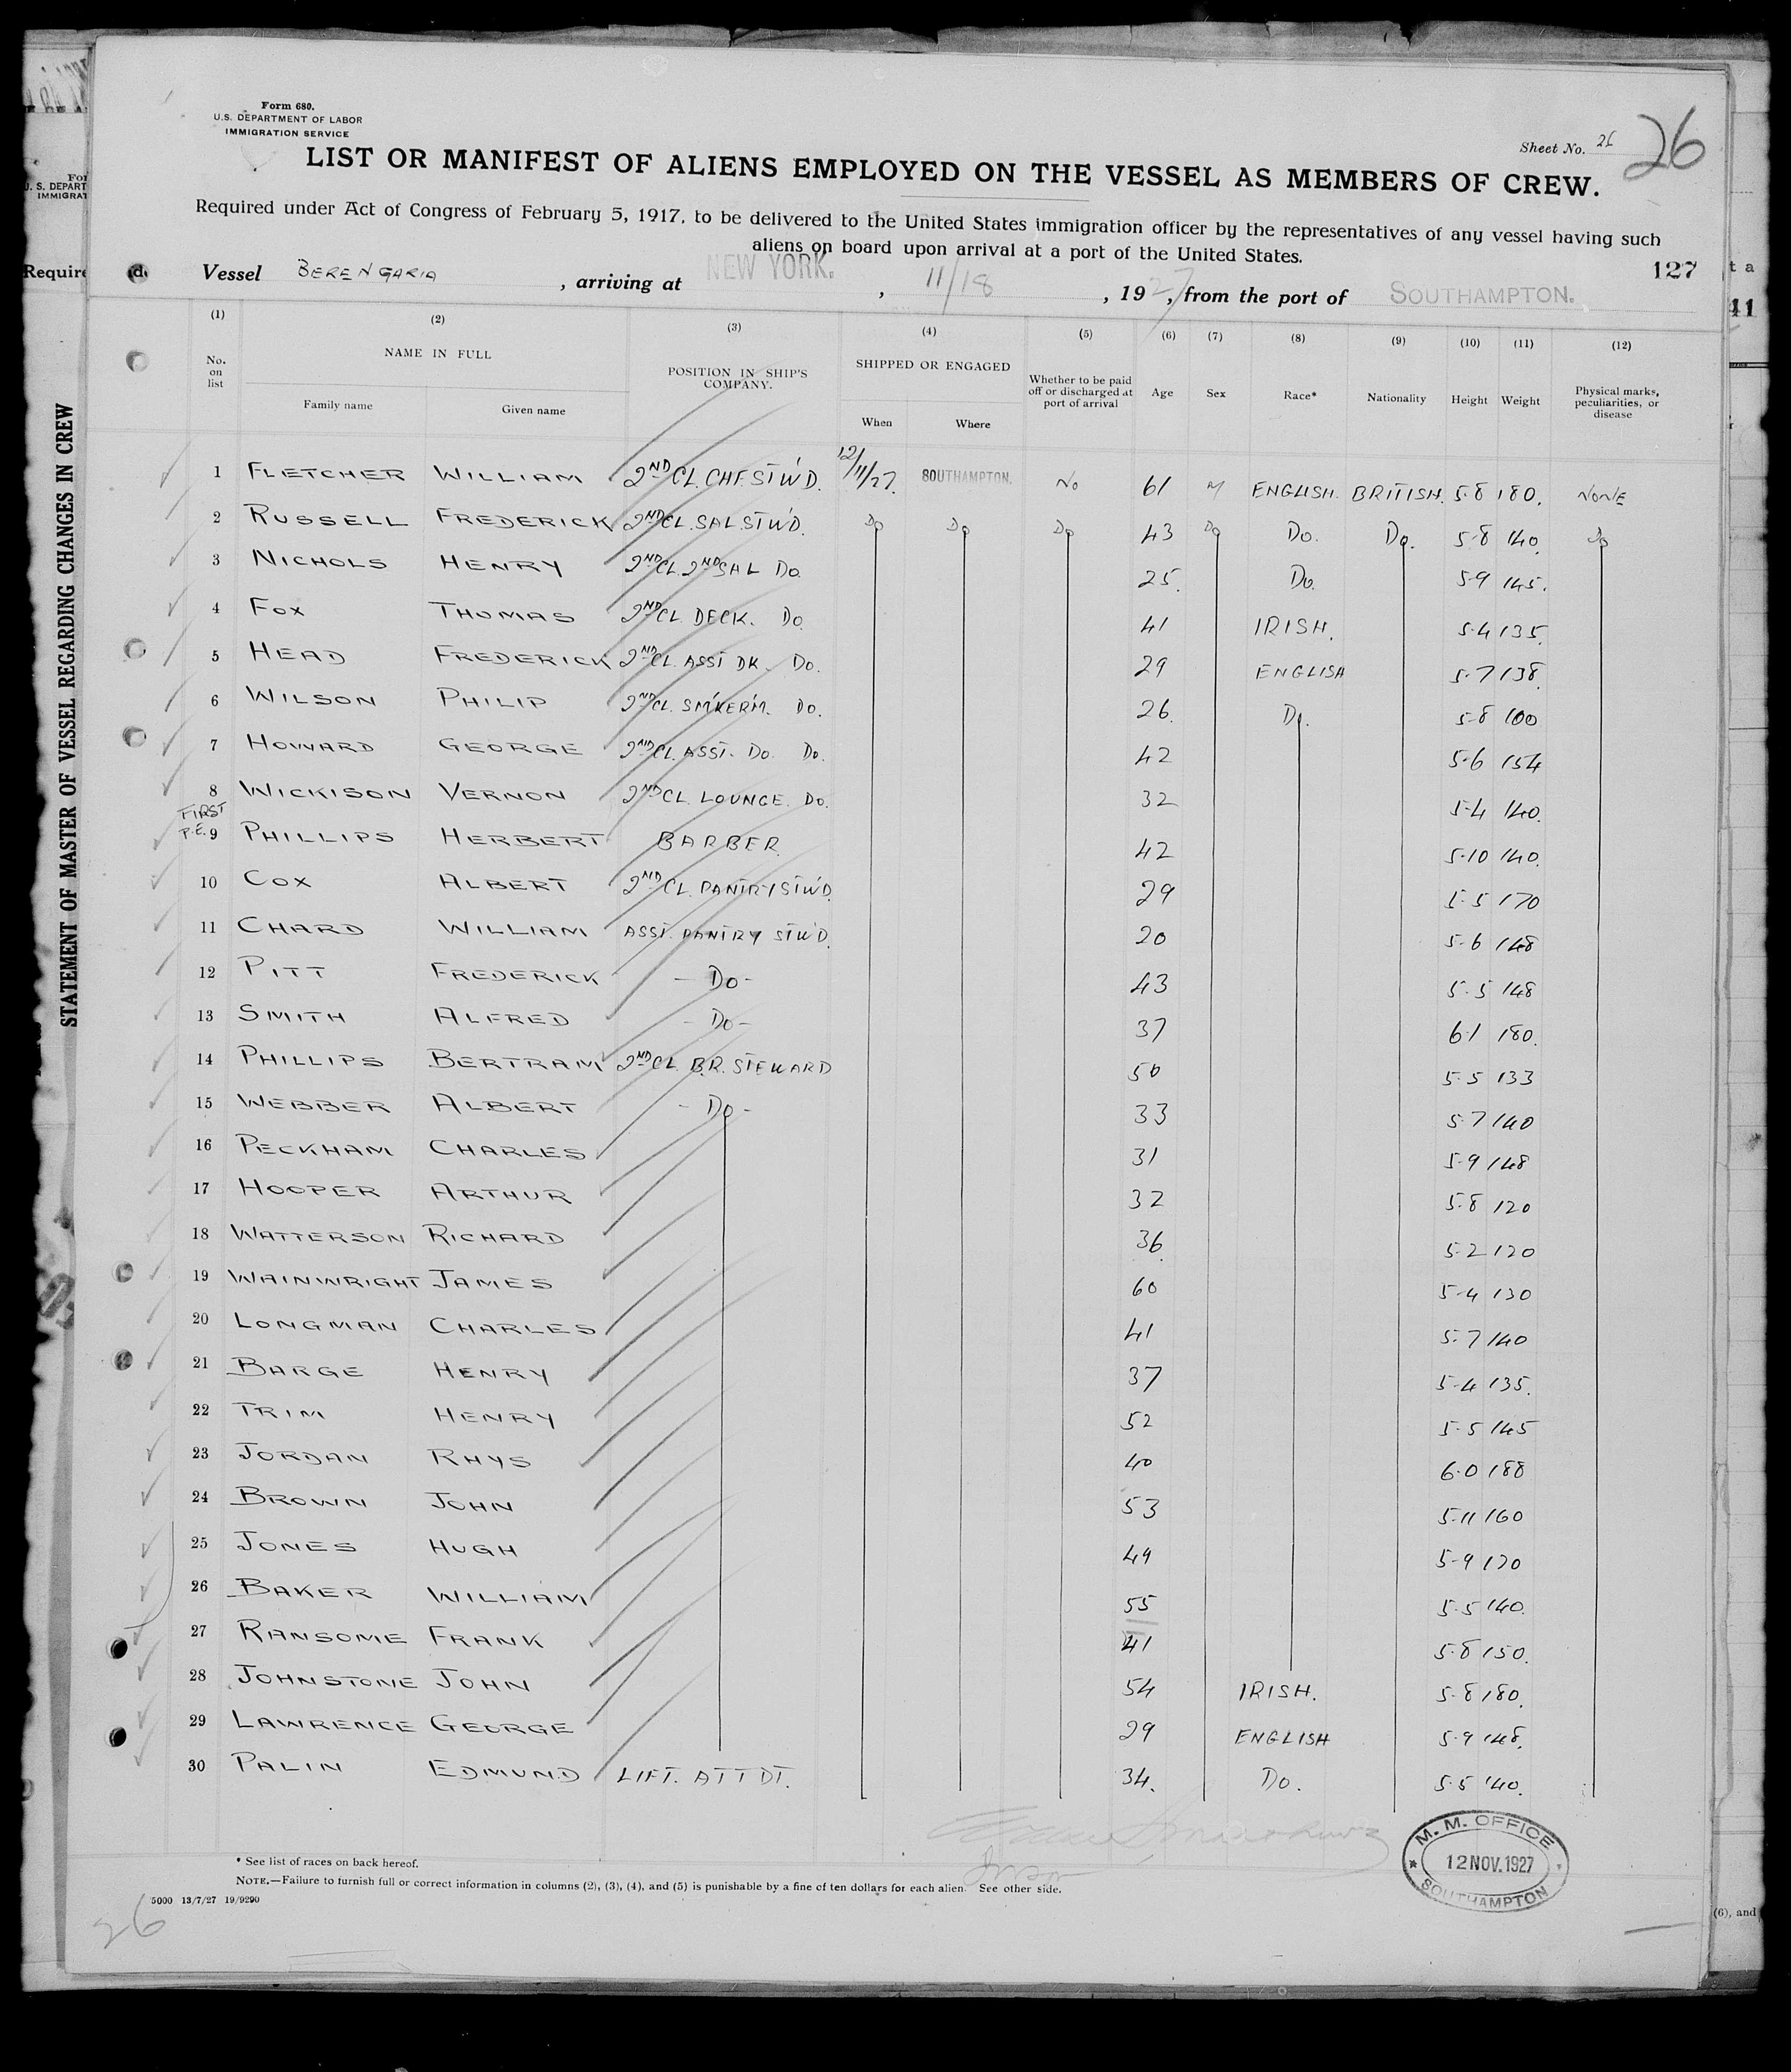 Form 680.
U.S. DEPARTMENT OF LABOR
IMMIGRATION SERVICE
Sheet No. 26
26
LIST OR MANIFEST OF ALIENS EMPLOYED ON THE VESSEL AS MEMBERS OF CREW.
Required under Act of Congress of February 5, 1917, to be delivered to the United States immigration officer by the representatives of any vessel having such
aliens on board upon arrival at a port of the United States.
127
Vessel BERENGARIA, arriving at NEW YORK., 11/18, 1927, from the port of SOUTHAMPTON.
(1) (2) (3) (4) (5) (6) (7) (8) (9) (10) (11) (12)
No. on list NAME IN FULL POSITION IN SHIP'S COMPANY. SHIPPED OR ENGAGED Whether to be paid off or discharged at port of arrival Age Sex Race* Nationality Height Weight Physical marks, peculiarities, or disease
Family name Given name When Where
1 FLETCHER WILLIAM 2ND CL. CHF. STW'D. 12/11/27. SOUTHAMPTON. No 61 M ENGLISH. BRITISH. 5.8 180. NONE
2 RUSSELL FREDERICK 2ND CL. SAL. STW'D. Do Do Do 43 Do Do. Do. 5.8 140. Do
3 NICHOLS HENRY 2ND CL. 2ND SAL Do. 25. Do. 5.9 145.
4 FOX THOMAS 2ND CL. DECK. Do. 41 IRISH. 5.4 135.
5 HEAD FREDERICK 2ND CL. ASST DK. Do. 29 ENGLISH 5.7 138.
6 WILSON PHILIP 2ND CL. SM'KERM. Do. 26. Do. 5.8 100
7 HOWARD GEORGE 2ND CL. ASST. Do. Do. 42 5.6 154
8 WICKISON VERNON 2ND CL. LOUNGE. Do. 32 5.4 140.
FIRST
P.E. 9 PHILLIPS HERBERT BARBER 42 5.10 140.
10 COX ALBERT 2ND CL. PANTRY STW'D. 29 5.5 170
11 CHARD WILLIAM ASST. PANTRY STW'D. 20 5.6 148
12 PITT FREDERICK - Do - 43 5.5 148
13 SMITH ALFRED - Do - 37 6.1 180.
14 PHILLIPS BERTRAM 2ND CL. B.R. STEWARD 50 5.5 133
15 WEBBER ALBERT - Do - 33 5.7 140
16 PECKHAM CHARLES 31 5.9 148
17 HOOPER ARTHUR 32 5.8 120
18 WATTERSON RICHARD 36. 5.2 120
19 WAINWRIGHT JAMES 60 5.4 130
20 LONGMAN CHARLES 41 5.7 140
21 BARGE HENRY 37 5.4 135.
22 TRIM HENRY 52 5.5 145
23 JORDAN RHYS 40 6.0 188
24 BROWN JOHN 53 5.11 160
25 JONES HUGH 49 5.9 170
26 BAKER WILLIAM 55 5.5 140.
27 RANSOME FRANK 41 5.8 150.
28 JOHNSTONE JOHN 54 IRISH. 5.8 180.
29 LAWRENCE GEORGE 29 ENGLISH 5.9 148.
30 PALIN EDMUND LIFT. ATTDT. 34. Do. 5.5 140.
M. M. OFFICE
12 NOV. 1927
SOUTHAMPTON
* See list of races on back hereof.
NOTE.—Failure to furnish full or correct information in columns (2), (3), (4), and (5) is punishable by a fine of ten dollars for each alien. See other side.
5000 13/7/27 19/9290
26
STATEMENT OF MASTER OF VESSEL REGARDING CHANGES IN CREW
U. S. DEPART
IMMIGRAT
Require
t a
41
(6), and